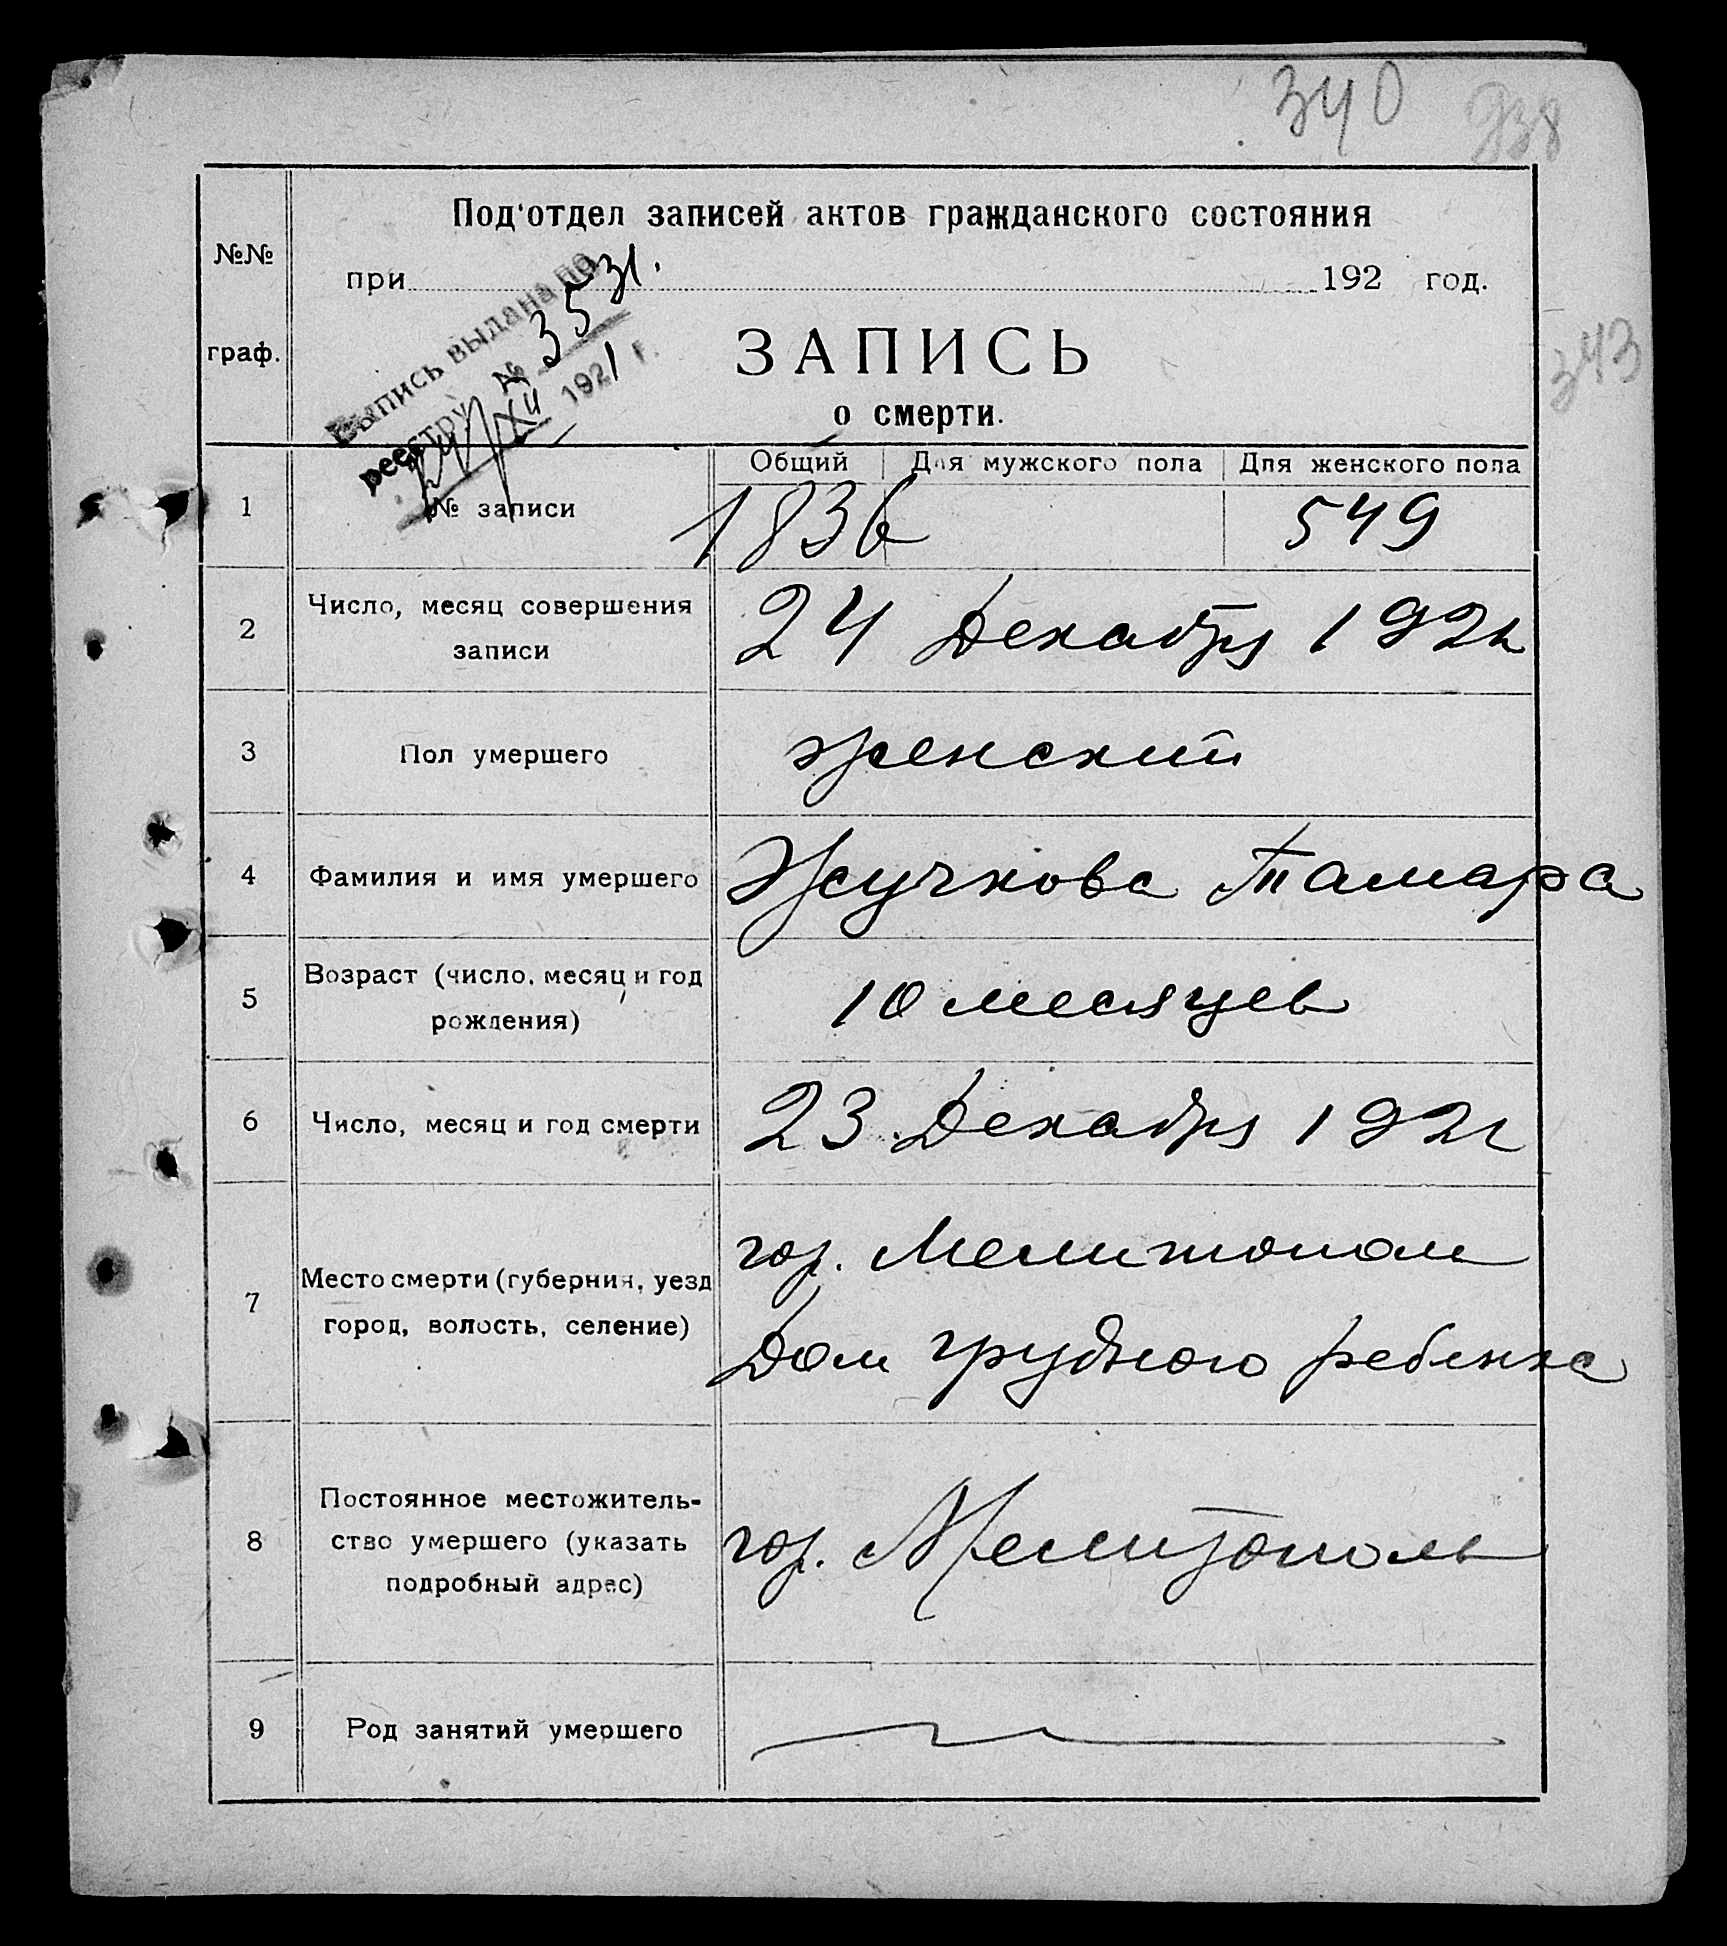 340 938
343
№№
граф.
Под'отдел записей актов гражданского состояния
при 192 год.
Выпись выдана по
реестру № 3531.
24/XII 1921 г.
ЗАПИСЬ
о смерти.
Общий Для мужского пола Для женского пола
1 № записи 1836 549
2 Число, месяц совершения
записи
24 Декабря 1921
3 Пол умершего женский
4 Фамилия и имя умершего Жучкова Тамара
5 Возраст (число, месяц и год
рождения)
10 месяцев
6 Число, месяц и год смерти 23 Декабря 1921
7 Место смерти (губерния, уезд
город, волость, селение)
гор. Мелитополь
Дом грудного ребенка
8 Постоянное местожитель-
ство умершего (указать
подробный адрес)
гор. Мелитополь
9 Род занятий умершего